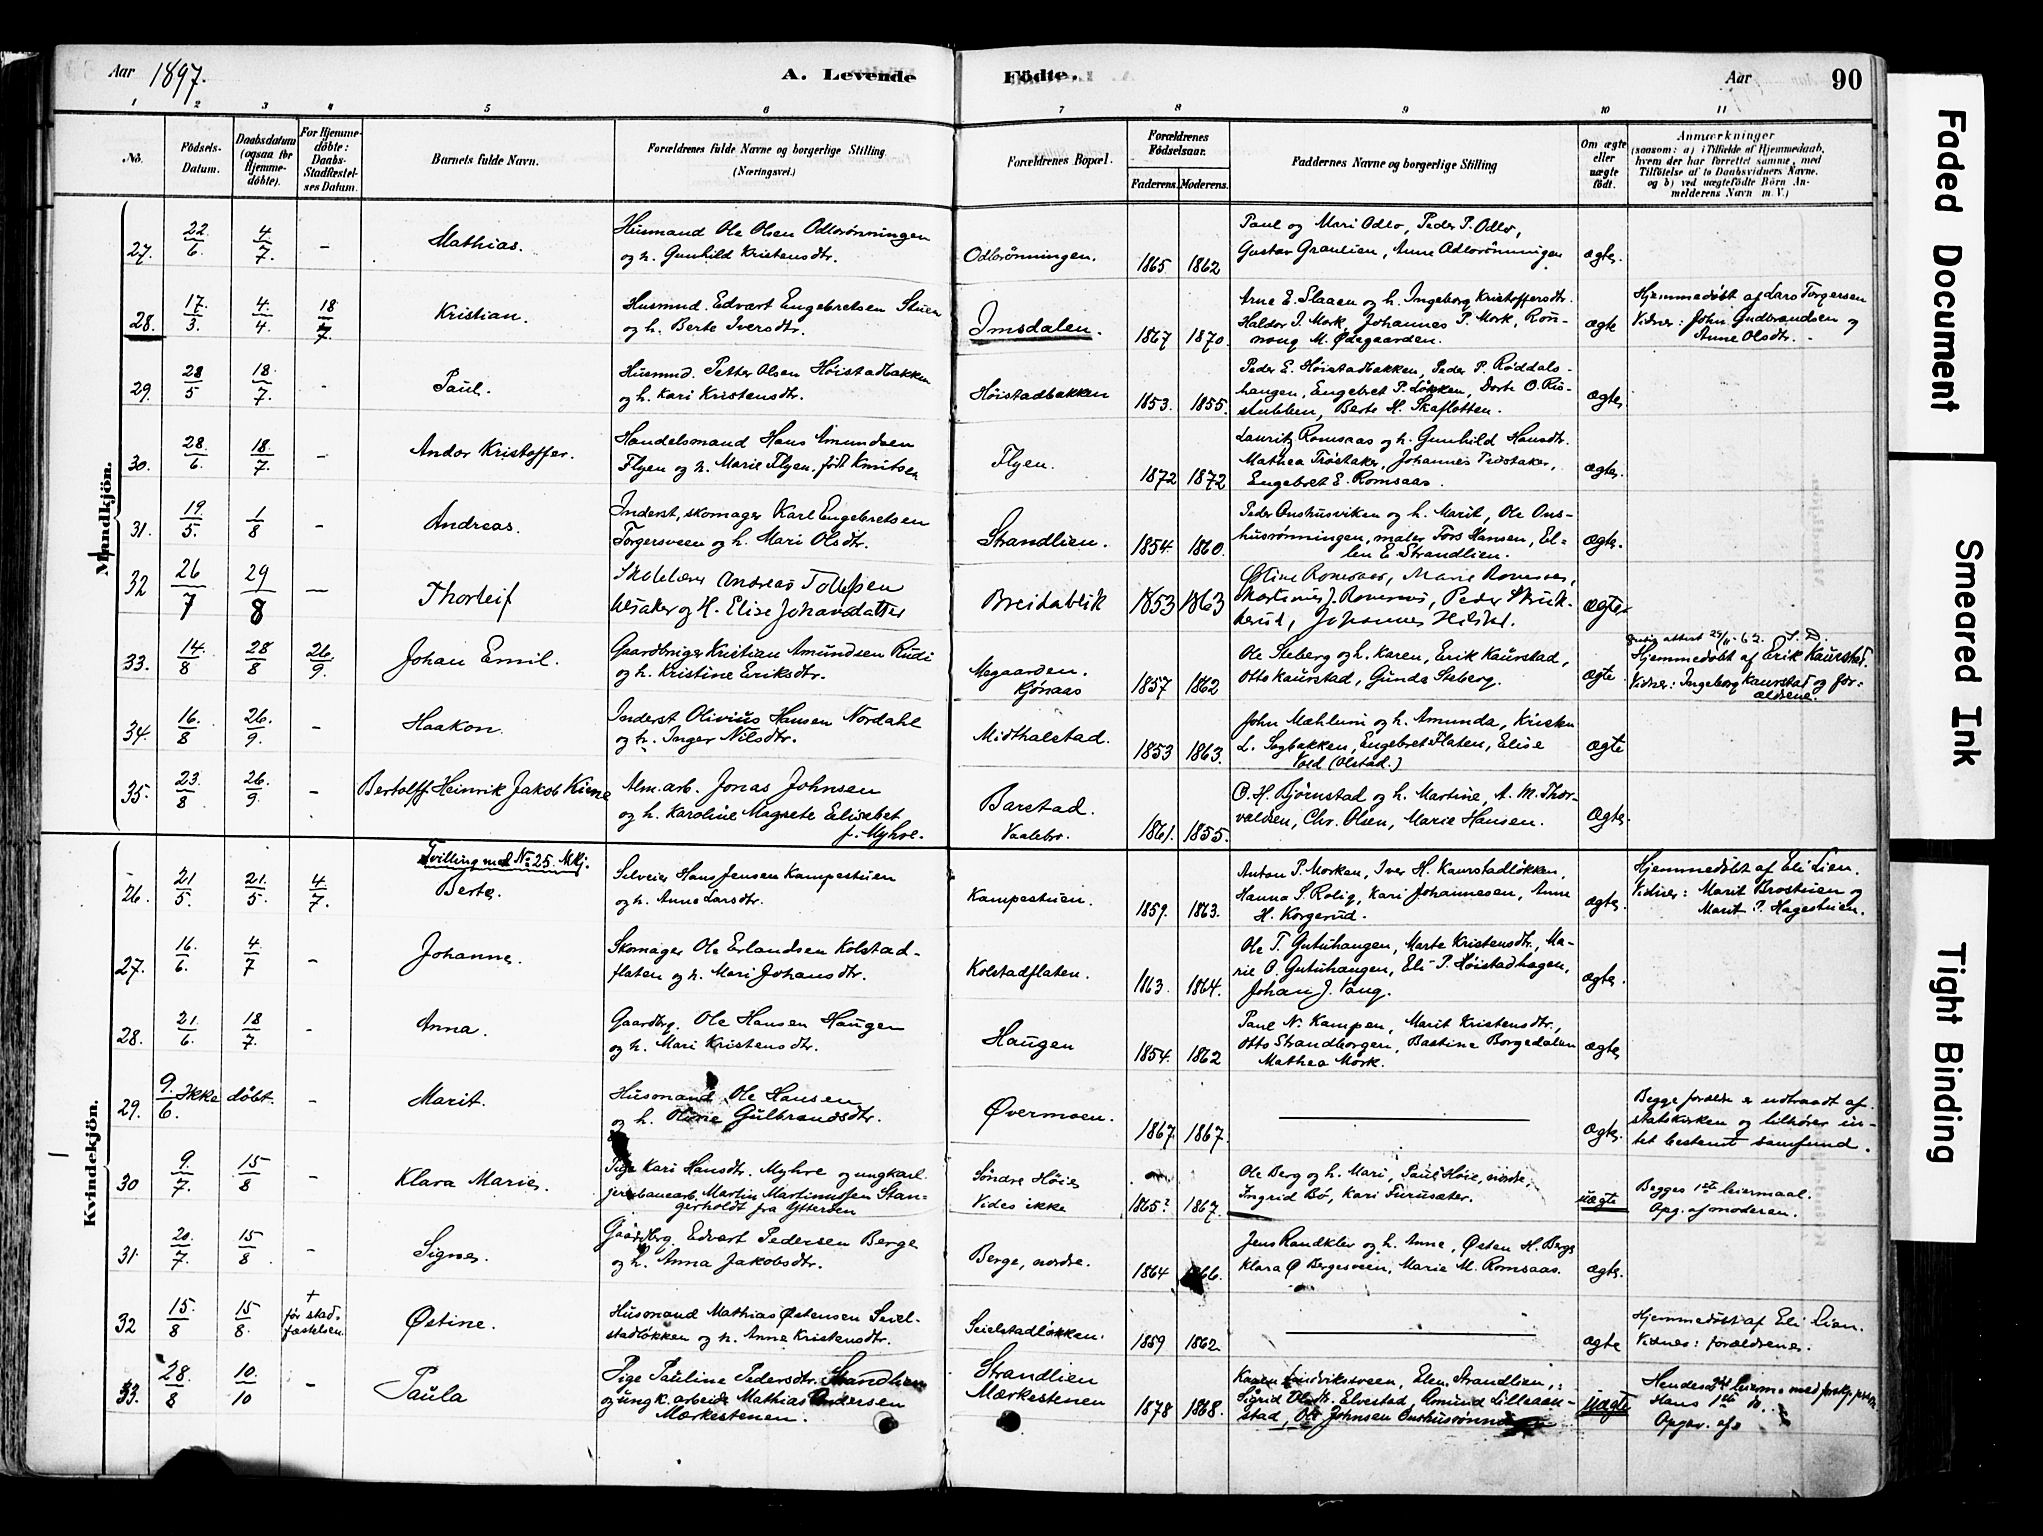 Aar 1897.
A. Levende
Födte.
Aar
90
1 2 3 4 5 6 7 8 9 10 11
No.
Födsels-Datum.
Daabsdatum (ogsaa for Hjemmedöbte).
For Hjemmedöbte: Daabs-Stadfæstelses Datum.
Barnets fulde Navn.
Forældrenes fulde Navne og borgerlige Stilling
(Næringsvei.)
Forældrenes Bopæl.
Forældrenes Födselsaar.
Faderens. Moderens.
Faddernes Navne og borgerlige Stilling
Om ægte eller uægte födt.
Anmærkninger
(saasom: a) i Tilfælde af Hjemmedaab, hvem der har forrettet samme, med Tilföielse af to Daabsvidners Navne, og b) ved uægtefödte Börn Anmelderens Navn m. V.)
Mandkjön.
27. 22/6. 4/7. - Mathias. Husmand Ole Olsen Odlorönningen
og h. Gunhild Kristensdtr. Odlorönningen. 1865 1862
Paul og Mari Odlo, Peder P. Odlo,
Gustav Graulien, Anne Odlorönningen ægte.
28. 17/3. 4/4 18/7. Kristian. Husmnd. Edvart Engebretsen Stuen
og h. Berte Iversdtr. Imsdalen. 1867 1870.
Arne E. Slaaen og h. Ingeborg Kristoffersdtr.
Haldor I. Mork, Johannes P. Mork, Rön-
naug M. Ødegaarden. ægte
Hjemmedöbt af Lars Torgersen
Vidner: John Gudbrandsen og
Anne Olsdtr.
29. 28/5 18/7. - Paul. Husmnd. Petter Olsen Höistadbakken
og h. Kari Kristensdtr. Höistadbakken 1853. 1855.
Peder E. Höistadbakken, Peder P. Röddals-
haugen, Engebret P. Lökken, Dorte O. Ris-
stubben, Berte H. Skafletten. ægte.
30. 28/6. 18/7. - Andor Kristoffer. Handelsmand Hans Amundsen
Flyen og h. Marie Flyen, född Knutsen Flyen. 1872 1872
Lauritz Romsaas og h. Gunhild Hansdtr.
Mathea Tröstaker, Johannes Tröstaker,
Engebret E. Romsaas. ægte.
31. 19/5. 1/8 - Andreas. Inderst, skomager Karl Engebretsen
Torgersveen og h. Mari Olsdtr. Strandlien. 1854. 1860.
Peder Onshusviken og h. Marit, Ole Ons-
husrönningen, maler Tors Hansen, El-
len E. Strandlien. ægte.
32 26/7 29/8 — Thorleif Skolelærer Andreas Tollefsen
Ulsaker og H. Elise Johansdatter Breidablik 1853 1863
Östine Romsaas, Marie Romsaas,
Martinus J. Romsaas, Peder
Johannes ægte
33. 14/8 28/8 26/9. Johan Emil. Gaardbruger Kristian Amundsen Rudi
og h. Kristine Eriksdtr. Megaarden. Kjönaas 1857 1862
Ole Steberg og h. Karen, Erik Kaurstad,
Otto Kaurstad, Gunda Steberg. ægte.
attest 29/11-62. S.D.
Hjemmedöbt af Erik Kaurstad.
Vidner: Ingeborg Kaurstad og for-
ældrene.
34. 16./8 26./9. - Haakon. Inderst Olivius Hansen Nordahl
og h. Inger Nilsdtr. Midthalstad. 1853 1863.
John Mæhlum og h. Amunda, Kristen
L. Sagbakken, Engebret Flaten, Elise
Vold (Olstad.) ægte
35. 23./8 26./9. - Bertolff Heinrik Jakob Kirne Alm.arb. Jonas Johnsen
og h. Karoline Magrete Elisabet
f. Myhre. Barstad. Vaalebr. 1861. 1855.
O. H. Björnstad og h. Martine, A. M. Thor-
valdsen, Chr. Olsen, Marie Hansen. ægte.
Kvindekjön.
Tvilling med No 25. Mkj.
26. 21/5. 21./5. 4/7. Berte. Selveier Hans Jensen Kampestuen
og h. Anne Larsdtr. Kampestuen. 1859. 1863.
Anton P. Morken, Iver H. Kaurstadlökken,
Hanna S. Rolig, Kari Johannesen, Anne
H. Korgerud. ægte.
Hjemmedöbt af Eli Lien.
Vidner: Marit Brostuen og
Marit P. Hagestuen.
27. 16./6. 4./7 - Johanne. Skomager Ole Erlandsen Kolstad-
flaten og h. Mari Johansdtr. Kolstadflaten. 1863 1864.
Ole T. Gutuhaugen, Marte Kristensdtr., Ma-
rie O. Gutuhaugen, Eli P. Höistadhagen,
Johan J. Vang. ægte.
28. 21./6. 18/7. - Anna. Gaardbrg. Ole Hansen Haugen
og h. Mari Kristensdtr. Haugen 1854. 1862
Paul N. Kampen, Marit Kristensdtr.,
Otto Strandborgen, Bastine Borgedalen
Mathea Mork. ægte
29. 9./6. Ikke döbt. - Marit. Husmand Ole Hansen
og h. Oline Gulbrandsdtr. Øvermoen. 1867. 1867. ægte.
Begge forældre er udtraadt af
statskirken og tilhører in-
tet bestemt samfund.
30 9./7. 15/8 - Klara Marie. Pige Kari Hansdtr. Myhre og ungkarl
jernbanearb. Martin Martinussen Stan-
gerholdt fra Ytteröen Söndre Höie Vides ikke 1865? 1867.
Ole Berg og h. Mari, Paul Höie, nordre,
Ingrid Bö, Kari Furusæter. uægte
Begges 1ste leiermaal.
Opg. af moderen.
31. 20./7. 15/8 - Signe. Gaardbrg. Edvart Pedersen Berge
og h. Anna Jakobsdtr. Berge, nordre. 1864 1866.
Jens Randklev og h. Anne, Østen H. Berge
Klara Ø Bergesveen, Marie M. Romsaas. ægte.
32 15./8 15/8. + før stadfæstelsen Østine. Husmand Mathias Østensen Seiel-
stadlökken og h. Anne Kristensdtr. Seielstadlökken. 1859 1862. ægte
Hjemmedöbt af Eli Lien.
Vidnes: forældrene.
33. 28./8 10./10 - Paula Pige Pauline Pedersdtr. Strandlien
og ungk. arbeider Mathias Andersen
Mærkestenen. Strandlien Mærkestenen 1878 1868.
Karen Lundriksveen, Elen Strandlien,
Sigrid Olsdtr. Elvestad, Amund Lilleaan-
stad, Ole Johnsen Onshusrönn. uægte
Hendes leierm. med forskj. personer
Hans 1ste
Opgav. af
Faded Document
Smeared Ink
Tight Binding